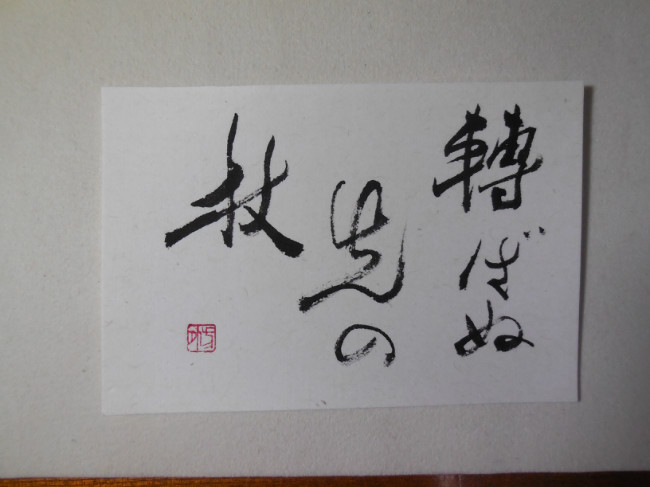 轉ばぬ
先の
杖